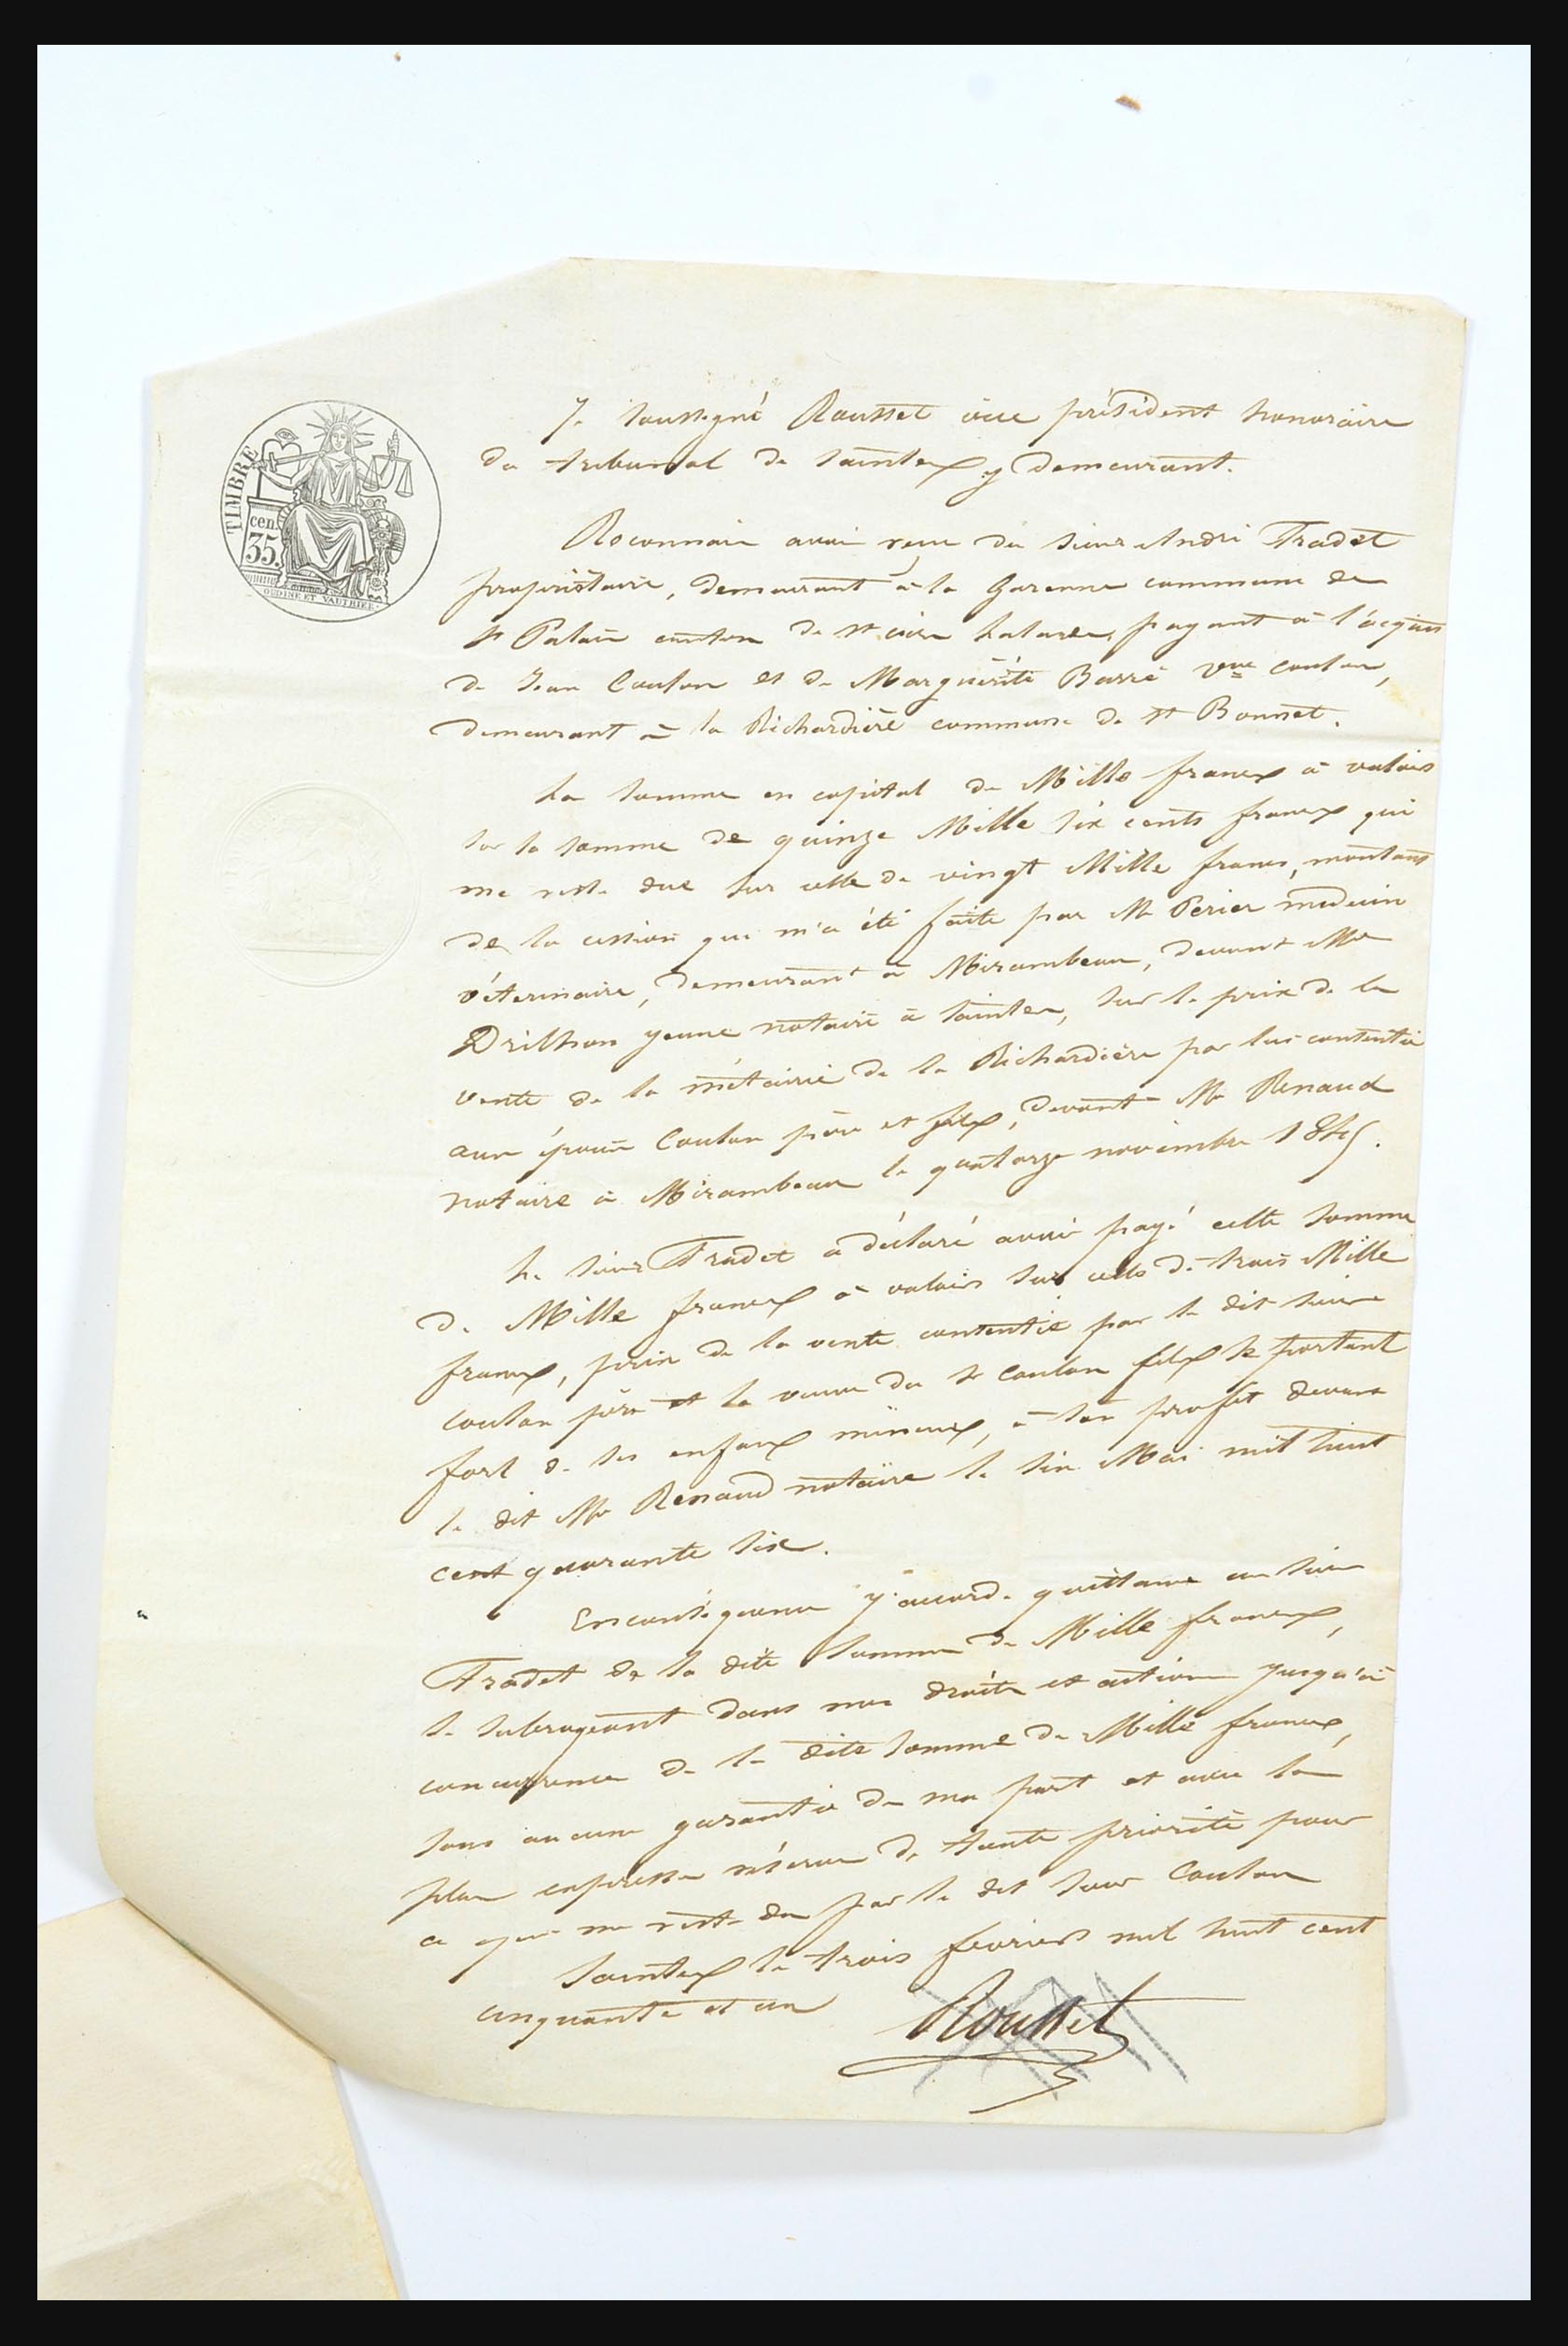 TIMBRE
cen.
35.
ORDINE ET VAUTHIER.
Je soussigné Rousset vice président honoraire
du tribunal de Saintes y demeurant.
Reconnais avoir reçu du sieur André Tradet
propriétaire, demeurant à la Garenne commune de
St Palais canton de St payant à l'acquit
de Jean Coulon et de Marguérite Barré Vve Coulon,
demeurant à la Richardière commune de St Bonnet.
La somme en capital de Mille francs à valoir
sur la somme de quinze Mille six cents francs qui
me reste due sur celle de vingt Mille francs, montant
de la cession qui m'a été faite par Mr Perier medecin
véterinaire, demeurant à Mirambeau, devant Me
Drilhon jeune notaire à Saintes, sur le prix de la
vente de la métairie de la Richardière par lui consentie
aux époux Coulon père et fils, devant Me Renaud
notaire à Mirambeau le quatorze novembre 1845.
Le sieur Tradet a déclaré avoir payé cette somme
de Mille francs à valoir sur celle de trois Mille
francs, prix de la vente consentie par le dit sieur
Coulon père et la veuve du Sr Coulon fils se portant
fort de ses enfans mineurs, à son profit devant
le dit Me Renaud notaire le six Mai mil huit
cent quarante six.
En conséquence j'accorde quittance au sieur
Tradet de la dite somme de Mille francs,
le subrogeant dans mes droits et actions jusqu'à
concurrence de la dite somme de Mille francs,
sans aucune garantie de ma part et avec la
plus expresse réserve de toute priorité pour
ce qui me reste du par le dit sieur Coulon
Saintes le trois fevrier mil huit cent
cinquante et un
Rousset